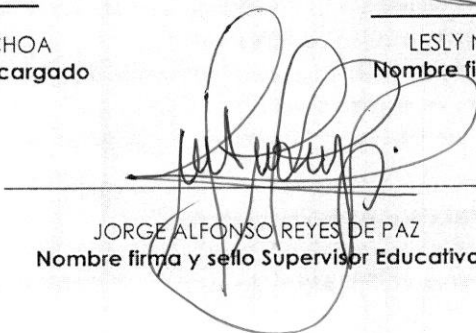 CHOA
cargado
LESLY
Nombre fi
JORGE ALFONSO REYES DE PAZ
Nombre firma y sello Supervisor Educativo